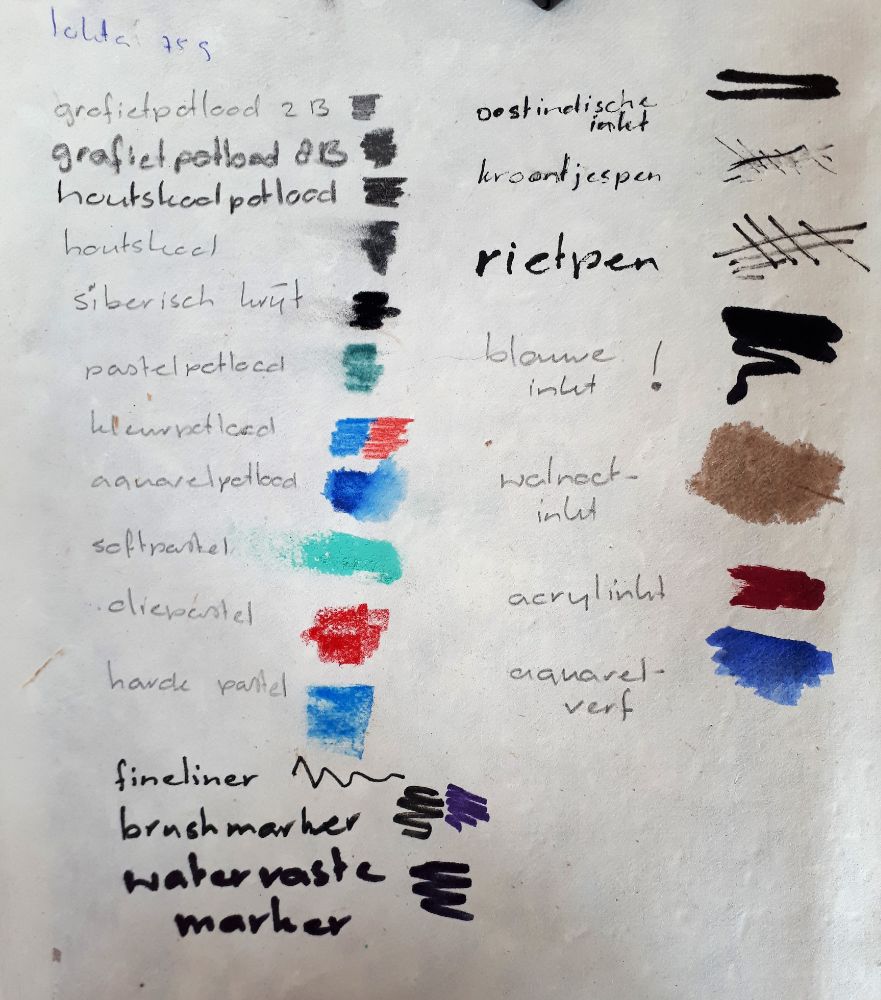 lokta 75 g
grafietpotlood 2B
grafietpotlood 8B
houtskoolpotlood
houtskool
siberisch krijt
pastelpotlood
kleurpotlood
aquarelpotlood
softpastel
oliepastel
harde pastel
fineliner
brushmarker
watervaste
marker
oostindische
inkt
kroontjespen
rietpen
blauwe !
inkt
walnoot-
inkt
acrylinkt
aquarel-
verf